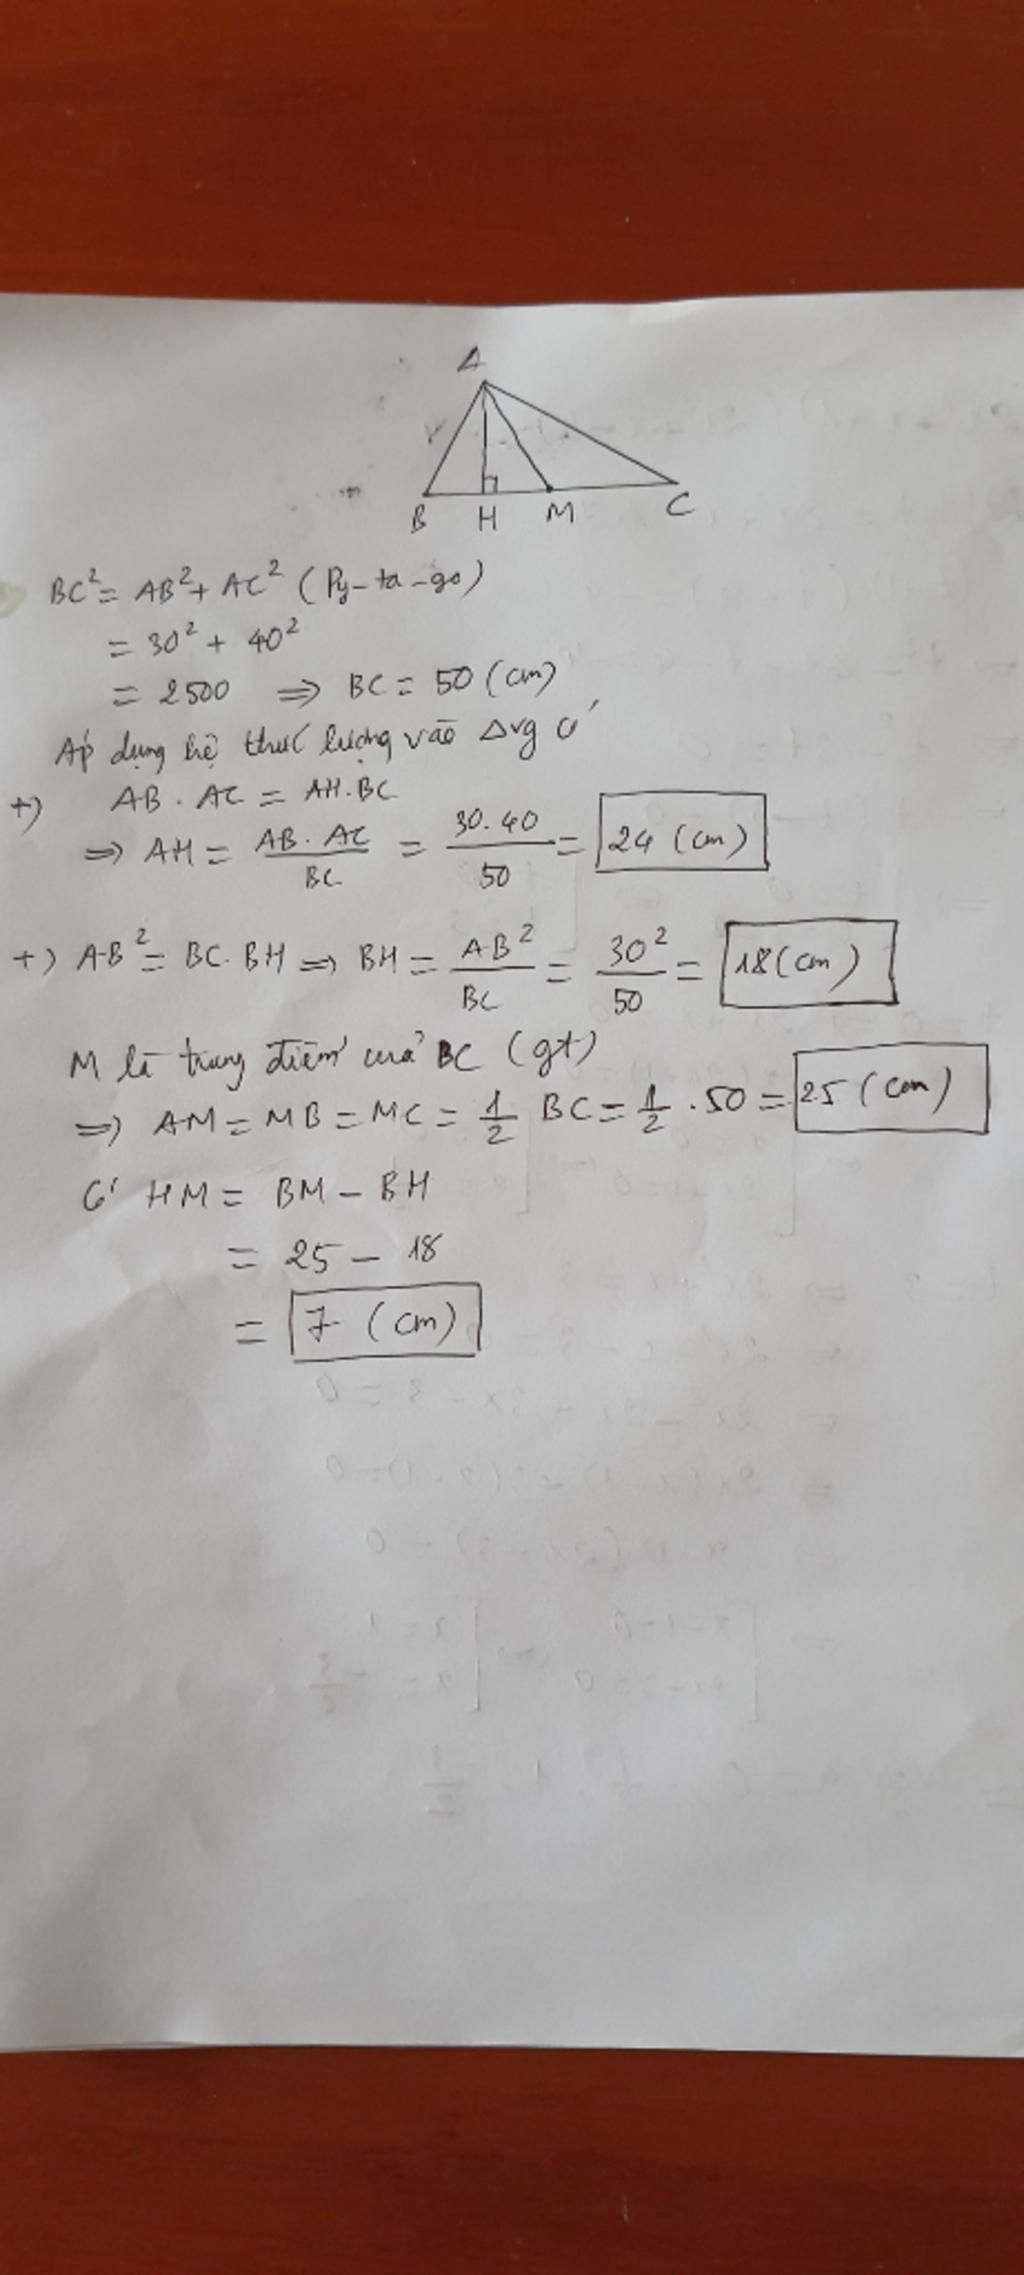 A
B H M C
BC² = AB² + AC² (Py-ta-go)
= 30² + 40²
= 2500 => BC = 50 (cm)
Áp dụng hệ thức lượng vào Δvg có
+) AB . AC = AH.BC
=> AH = AB. AC / BC = 30.40 / 50 = 24 (cm)
+) AB² = BC. BH => BH = AB² / BC = 30² / 50 = 18 (cm)
M là trung điểm của BC (gt)
=> AM = MB = MC = 1/2 BC = 1/2 . 50 = 25 (cm)
Có HM = BM - BH
= 25 - 18
= 7 (cm)